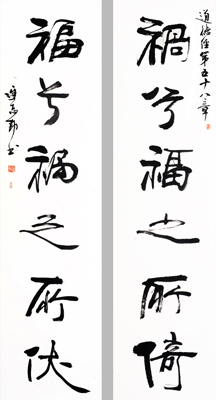 道德經第五十八章
禍兮福之所倚
福兮禍之所伏